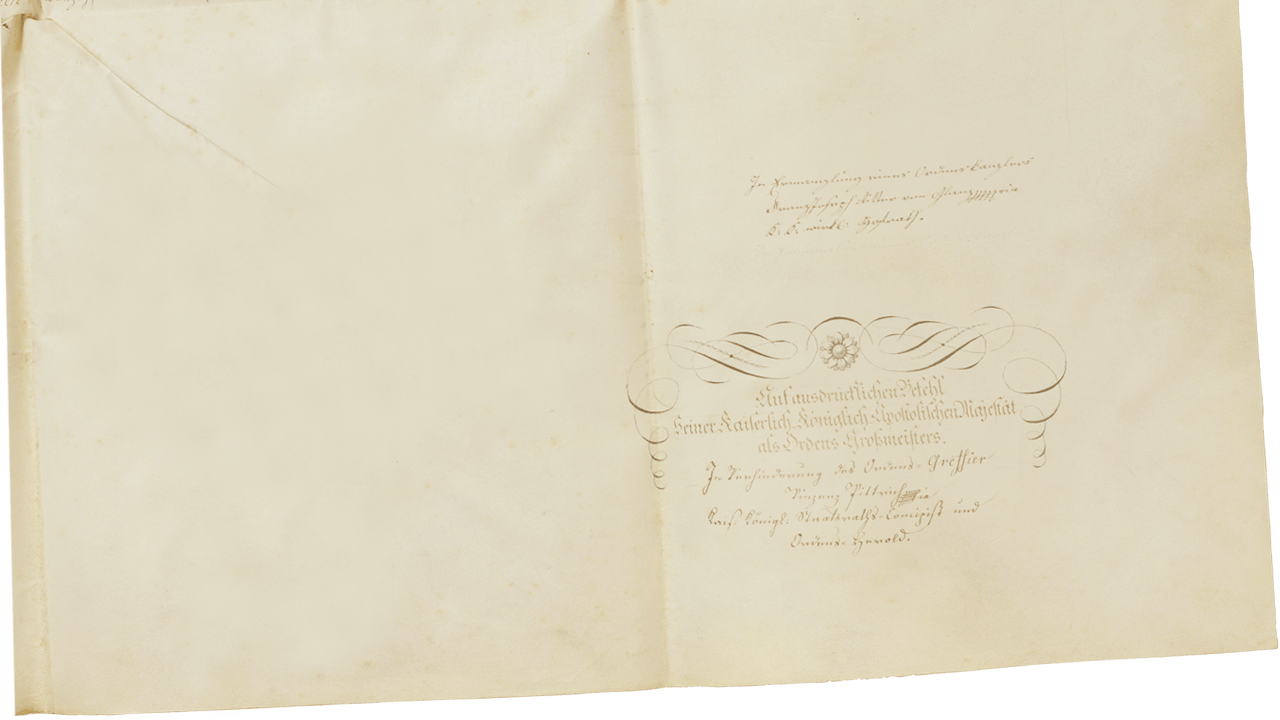 In Ermanglung eines Ordens Kanzlers
Franz Joseph Ritter von
K: K: wirkl: Hofrath.
Auf ausdrücklichen Befehl
Seiner Kaiserlich-Königlich-Apostolischen Majestät
als Ordens Großmeisters.
In Verhinderung des Ordens-Greffier
Vinzenz Pittrich
Kais: Königl: Staatsraths-Concipist und
Ordens-Herold.